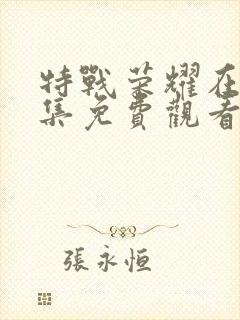 特戰荣耀在
集免費觀看
張永恒